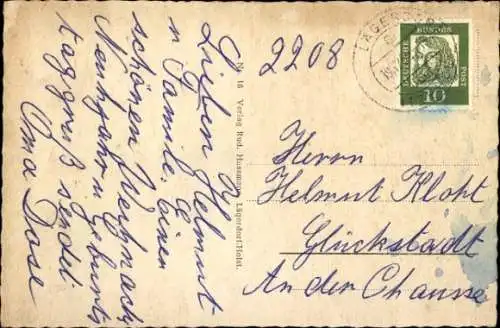 Lieben Helmut
u Familie. Einen
schönen Weihnach
Neuhjahr u. Geburts
taggruß sendet
Oma Dose
No. 18 Verlag Rud. Hussmann, Lägerdorf/Holst.
2208
LÄGERDORF
DEUTSCHE
BUNDES
POST
10
Herrn
Helmut Kloht
Glückstadt
An der Chausse